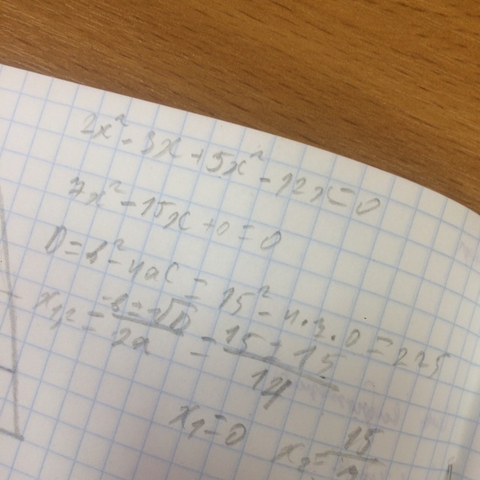 2x² - 3x + 5x² - 12x = 0
7x² - 15x + 0 = 0
D = b² - 4ac = 15² - 4·7·0 = 225
x₁,₂ = (-b ± √D)/2a = (15 ± 15)/14
x₁ = 0 x₂ = 15/